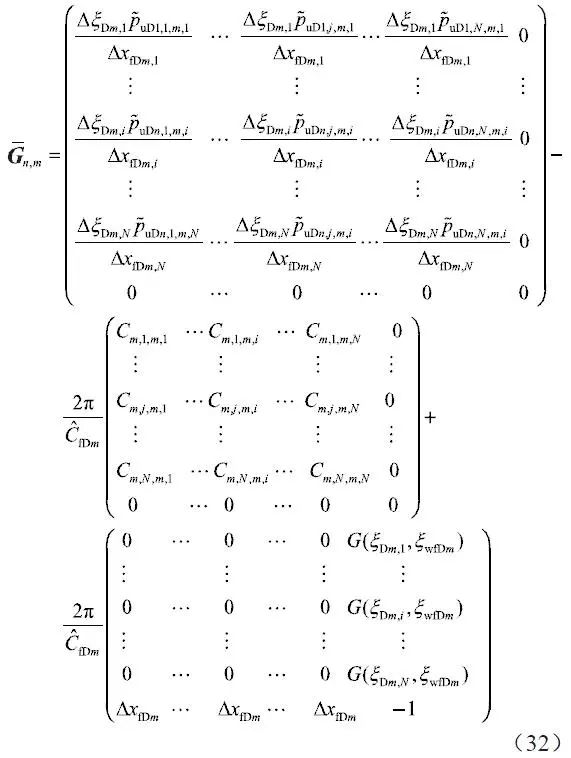 \overline{\boldsymbol{G}}_{n,m} = \begin{pmatrix} \dfrac{\Delta\xi_{\mathrm{D}m,1}\tilde{p}_{\mathrm{uD}1,1,m,1}}{\Delta x_{\mathrm{fD}m,1}} & \cdots & \dfrac{\Delta\xi_{\mathrm{D}m,1}\tilde{p}_{\mathrm{uD}1,j,m,1}}{\Delta x_{\mathrm{fD}m,1}} & \cdots & \dfrac{\Delta\xi_{\mathrm{D}m,1}\tilde{p}_{\mathrm{uD}1,N,m,1}}{\Delta x_{\mathrm{fD}m,1}} & 0 \\ \vdots & & \vdots & & \vdots & \vdots \\ \dfrac{\Delta\xi_{\mathrm{D}m,i}\tilde{p}_{\mathrm{uD}n,1,m,i}}{\Delta x_{\mathrm{fD}m,i}} & \cdots & \dfrac{\Delta\xi_{\mathrm{D}m,i}\tilde{p}_{\mathrm{uD}n,j,m,i}}{\Delta x_{\mathrm{fD}m,i}} & \cdots & \dfrac{\Delta\xi_{\mathrm{D}m,i}\tilde{p}_{\mathrm{uD}n,N,m,i}}{\Delta x_{\mathrm{fD}m,i}} & 0 \\ \vdots & & \vdots & & \vdots & \vdots \\ \dfrac{\Delta\xi_{\mathrm{D}m,N}\tilde{p}_{\mathrm{uD}n,1,m,N}}{\Delta x_{\mathrm{fD}m,N}} & \cdots & \dfrac{\Delta\xi_{\mathrm{D}m,N}\tilde{p}_{\mathrm{uD}n,j,m,i}}{\Delta x_{\mathrm{fD}m,N}} & \cdots & \dfrac{\Delta\xi_{\mathrm{D}m,N}\tilde{p}_{\mathrm{uD}n,N,m,i}}{\Delta x_{\mathrm{fD}m,N}} & 0 \\ 0 & \cdots & 0 & \cdots & 0 & 0 \end{pmatrix} -
\dfrac{2\pi}{\hat{C}_{\mathrm{fD}m}} \begin{pmatrix} C_{m,1,m,1} & \cdots & C_{m,1,m,i} & \cdots & C_{m,1,m,N} & 0 \\ \vdots & & \vdots & & \vdots & \vdots \\ C_{m,j,m,1} & \cdots & C_{m,j,m,i} & \cdots & C_{m,j,m,N} & 0 \\ \vdots & & \vdots & & \vdots & \vdots \\ C_{m,N,m,1} & \cdots & C_{m,N,m,i} & \cdots & C_{m,N,m,N} & 0 \\ 0 & \cdots & 0 & \cdots & 0 & 0 \end{pmatrix} +
\dfrac{2\pi}{\hat{C}_{\mathrm{fD}m}} \begin{pmatrix} 0 & \cdots & 0 & \cdots & 0 & G(\xi_{\mathrm{D}m,1},\xi_{\mathrm{wfD}m}) \\ \vdots & & \vdots & & \vdots & \vdots \\ 0 & \cdots & 0 & \cdots & 0 & G(\xi_{\mathrm{D}m,i},\xi_{\mathrm{wfD}m}) \\ \vdots & & \vdots & & \vdots & \vdots \\ 0 & \cdots & 0 & \cdots & 0 & G(\xi_{\mathrm{D}m,N},\xi_{\mathrm{wfD}m}) \\ \Delta x_{\mathrm{fD}m} & \cdots & \Delta x_{\mathrm{fD}m} & \cdots & \Delta x_{\mathrm{fD}m} & -1 \end{pmatrix}
（32）